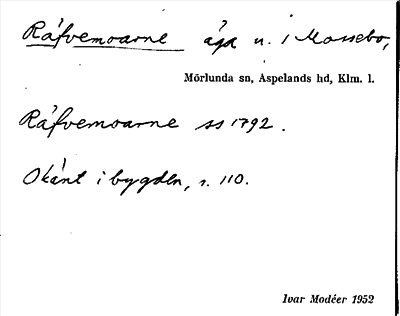 Råfvemoarne äga u. i Mossebo,
Mörlunda sn, Aspelands hd, Klm. l.
Råfvemoarne ss 1792.
Okänt i bygden, s. 110.
Ivar Modéer 1952